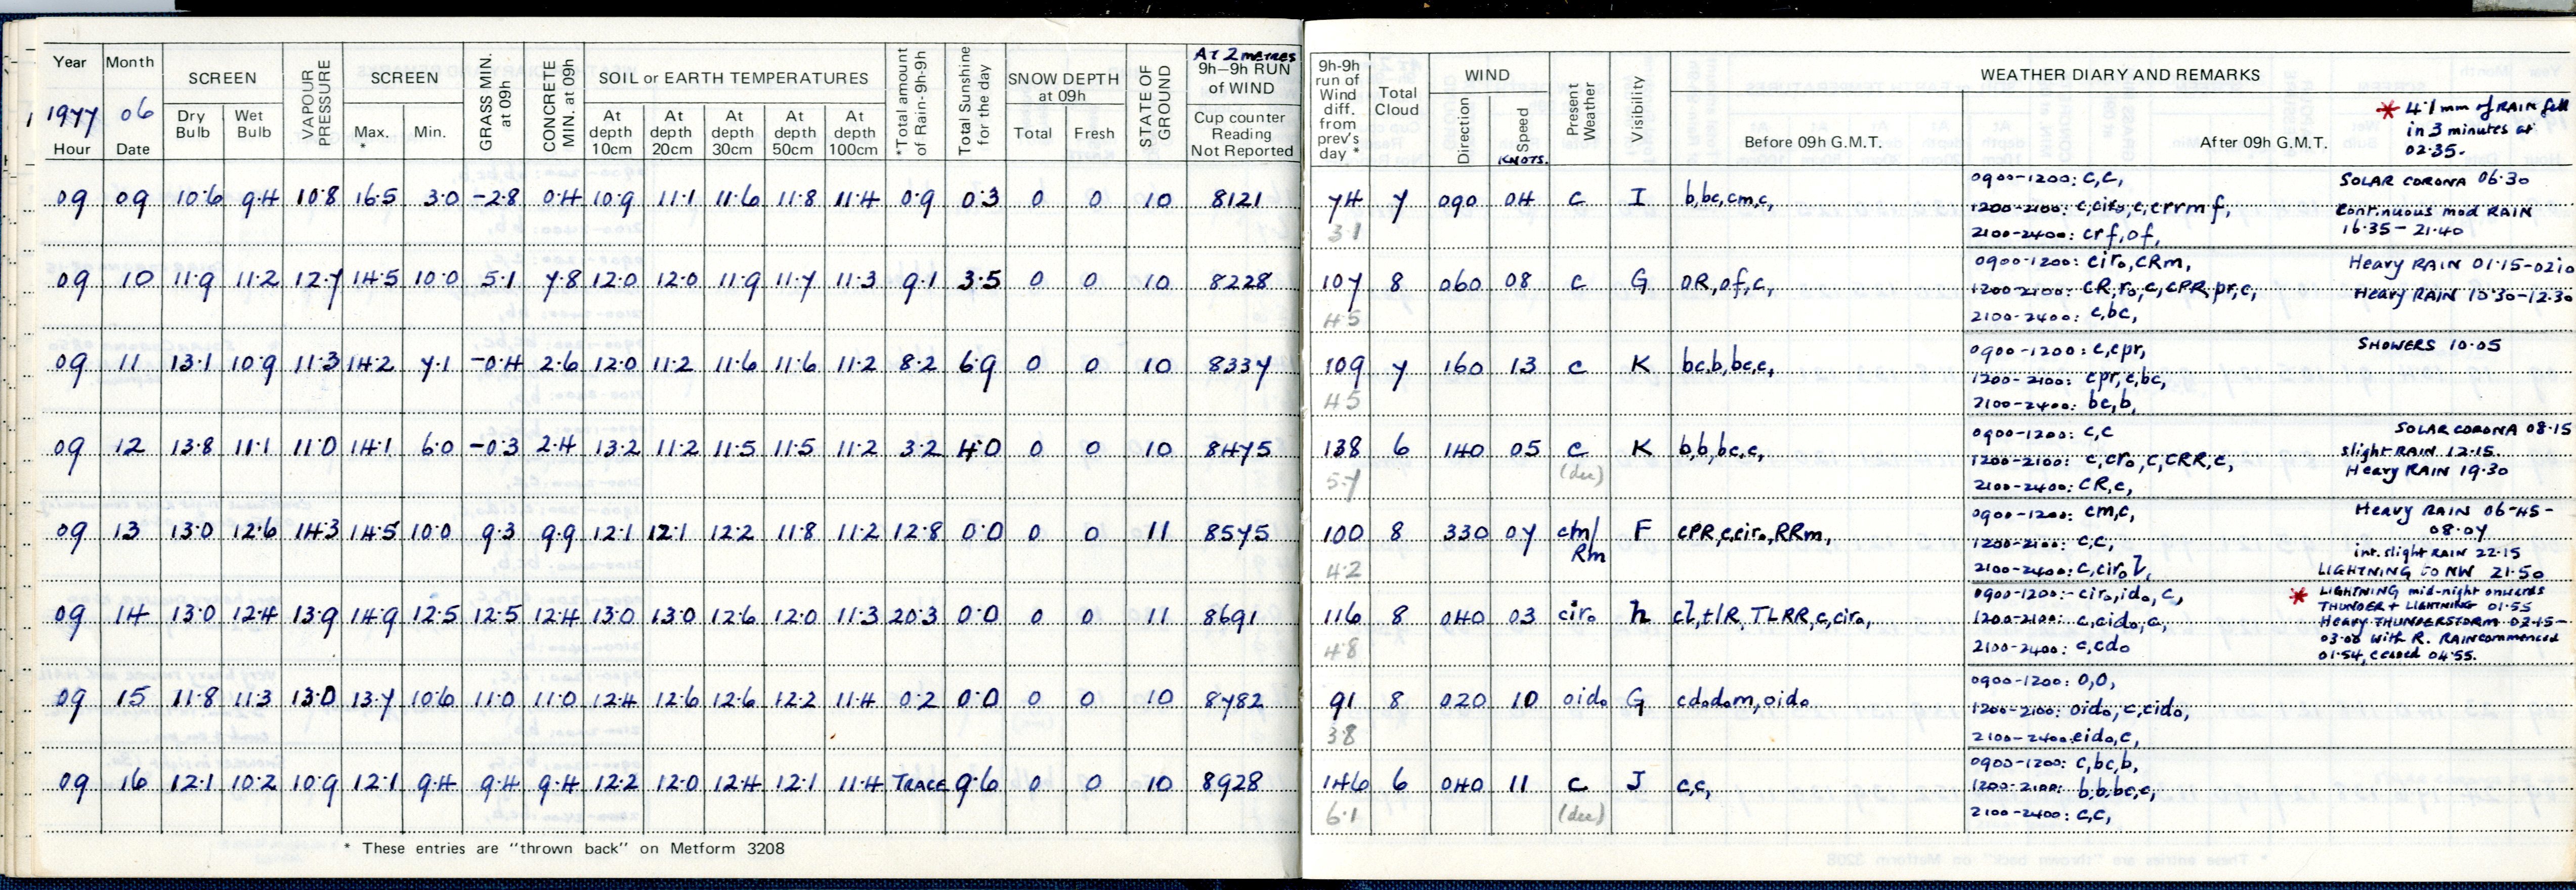 AT 2 METRES
Year Month SCREEN VAPOUR PRESSURE SCREEN GRASS MIN. at 09h CONCRETE MIN. at 09h SOIL or EARTH TEMPERATURES *Total amount of Rain-9h-9h Total Sunshine for the day SNOW DEPTH at 09h STATE OF GROUND 9h–9h RUN of WIND 9h-9h run of Wind diff. from prev's day * Total Cloud WIND Present Weather Visibility WEATHER DIARY AND REMARKS
1977 06 Dry Bulb Wet Bulb Max. * Min. At depth 10cm At depth 20cm At depth 30cm At depth 50cm At depth 100cm Total Fresh Cup counter Reading Not Reported Direction Speed KNOTS. Before 09h G.M.T. After 09h G.M.T.
Hour Date
* 4·1 mm of RAIN fell
in 3 minutes at
02·35.
09 09 10·6 9·4 10·8 16·5 3·0 -2·8 0·4 10·9 11·1 11·6 11·8 11·4 0·9 0·3 0 0 10 8121 74 7 090 04 c I b,bc,cm,c,
3·1
0900-1200: c,c,
1200-2100: c,ciro,c,crrm f,
2100-2400: crf,of,
SOLAR CORONA 06·30
Continuous mod RAIN
16·35 – 21·40
09 10 11·9 11·2 12·7 14·5 10·0 5·1 7·8 12·0 12·0 11·9 11·7 11·3 9·1 3·5 0 0 10 8228 107 8 060 08 c G OR,of,c,
4·5
0900-1200: ciro,CRm,
1200-2100: CR,ro,c,CPR,pr,c,
2100-2400: c,bc,
Heavy RAIN 01·15-0210
Heavy RAIN 10·30-12·30
09 11 13·1 10·9 11·3 14·2 7·1 -0·4 2·6 12·0 11·2 11·6 11·6 11·2 8·2 6·9 0 0 10 8337 109 7 160 13 c K bc,b,bc,c,
4·5
0900-1200: c,cpr,
1200-2100: cpr,c,bc,
2100-2400: bc,b,
SHOWERS 10·05
09 12 13·8 11·1 11·0 14·1 6·0 -0·3 2·4 13·2 11·2 11·5 11·5 11·2 3·2 4·0 0 0 10 8475 138 6 140 05 c K b,b,bc,c,
5·7 (dec)
0900-1200: c,c
1200-2100: c,cro,c,CRR,c,
2100-2400: CR,c,
SOLAR CORONA 08·15
slight RAIN 12·15.
Heavy RAIN 19·30
09 13 13·0 12·6 14·3 14·5 10·0 9·3 9·9 12·1 12·1 12·2 11·8 11·2 12·8 0·0 0 0 11 8575 100 8 330 07 cm/Rm F cPR,c,ciro,RRm,
4·2
0900-1200: cm,c,
1200-2100: c,c,
2100-2400: c,ciro l,
Heavy RAIN 06·45-
08·07
int. slight RAIN 22·15
LIGHTNING to NW 21·50
09 14 13·0 12·4 13·9 14·9 12·5 12·5 12·4 13·0 13·0 12·6 12·0 11·3 20·3 0·0 0 0 11 8691 116 8 040 03 ciro h cl,tlR,TLRR,c,ciro,
4·8
0900-1200:- ciro,ido,c,
1200-2100: c,cido,c,
2100-2400: c,cdo
* LIGHTNING mid-night onwards
THUNDER + LIGHTNING 01·55
Heavy THUNDERSTORM 02·15-
03·00 with R. RAIN commenced
01·54, ceased 04·55.
09 15 11·8 11·3 13·0 13·7 10·6 11·0 11·0 12·4 12·6 12·6 12·2 11·4 0·2 0·0 0 0 10 8782 91 8 020 10 oido G cdodom,oido
3·8
0900-1200: o,o,
1200-2100: oido,c,cido,
2100-2400: cido,c,
09 16 12·1 10·2 10·9 12·1 9·4 9·4 9·4 12·2 12·0 12·4 12·1 11·4 TRACE 9·6 0 0 10 8928 146 6 040 11 c J c,c,
6·1 (dec)
0900-1200: c,bc,b,
1200-2100: b,b,bc,c,
2100-2400: c,c,
* These entries are "thrown back" on Metform 3208